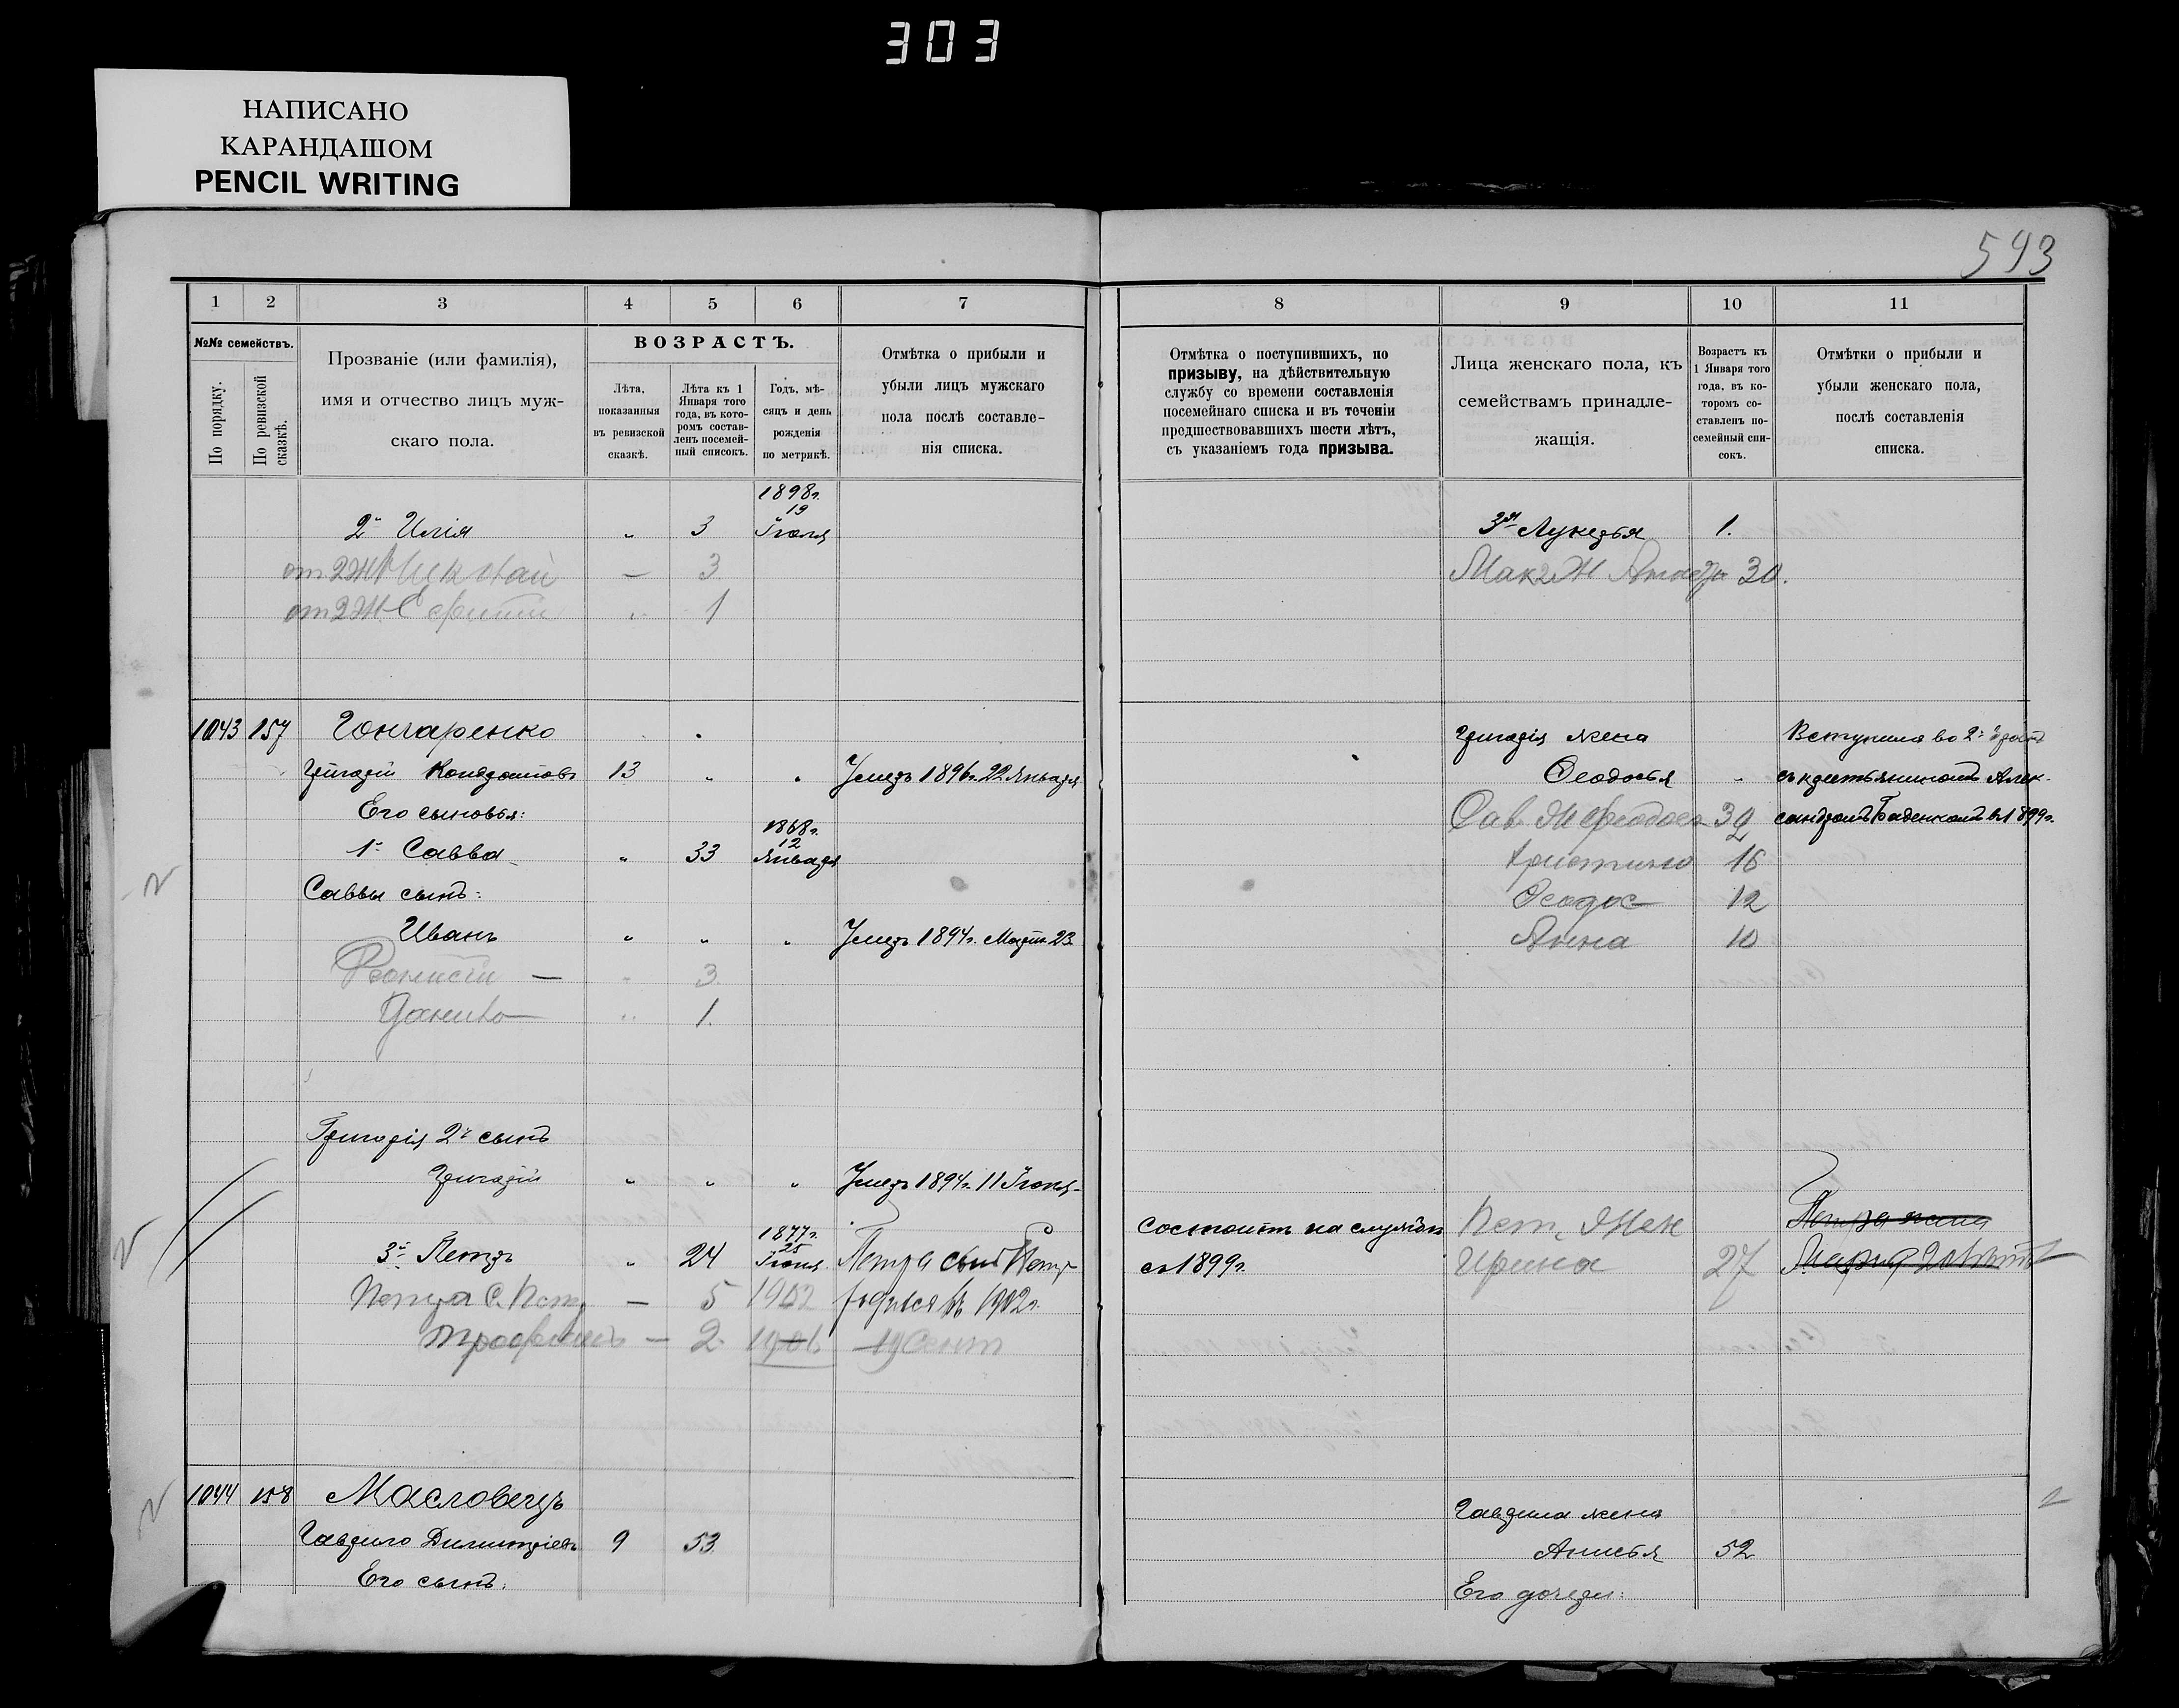 303
НАПИСАНО
КАРАНДАШОМ
PENCIL WRITING
543
1 2 3 4 5 6 7 8 9 10 11
№№ семействъ.
По порядку.
По ревизской сказкѣ.
Прозваніе (или фамилія),
имя и отчество лицъ муж-
скаго пола.
ВОЗРАСТЪ.
Лѣта,
показанныя
въ ревизской
сказкѣ.
Лѣта къ 1
Января того
года, въ кото-
ромъ состав-
ленъ посемей-
ный списокъ.
Годъ, мѣ-
сяцъ и день
рожденія
по метрикѣ.
Отмѣтка о прибыли и
убыли лицъ мужскаго
пола послѣ составле-
нія списка.
Отмѣтка о поступившихъ, по
призыву, на дѣйствительную
службу со времени составленія
посемейнаго списка и въ теченіи
предшествовавшихъ шести лѣтъ,
съ указаніемъ года призыва.
Лица женскаго пола, къ
семействамъ принадле-
жащія.
Возрастъ къ
1 Января того
года, въ ко-
торомъ со-
ставленъ по-
семейный спи-
сокъ.
Отмѣтки о прибыли и
убыли женскаго пола,
послѣ составленія
списка.
1898г.
19
2й Илія " 3 Іюня 3я Лукерья 1.
от 2 Ж — 3 30.
от 2 Ж " 1
1043 157 Гончаренко Григорія жена Вступила во 2й
Григорій 13 " " Умеръ 1896г. 22 Января Феодосья - съ крестьяниномъ Алек-
Его сыновья: Сав. Ж Феодос 32 сандромъ в 1899г.
1868г.
12
1й Савва " 33 Января Христина 16
Саввы сынъ: Феодос 12
Иванъ " " " Умеръ 1894г. Марта 23. Анна 10
" 3
Данило " 1.
Григорія 2й сынъ
Григорій " " " Умеръ 1894г. 11 Іюня
1877г.
25
3й Петръ " 24 Іюня Петра сынъ Петр
Состоитъ на службѣ
съ 1899г.
Пет. Жен
Ирина 27
Петра жена
Петра С. Пет. — 5 1902 родился въ 1902г.
Трофимъ — 2 1906 19 Сент
1044 158 Масловецъ Гаврила жена
Гаврило Димитріевъ 9 53 Анисья 52
Его сынъ: Его дочери: